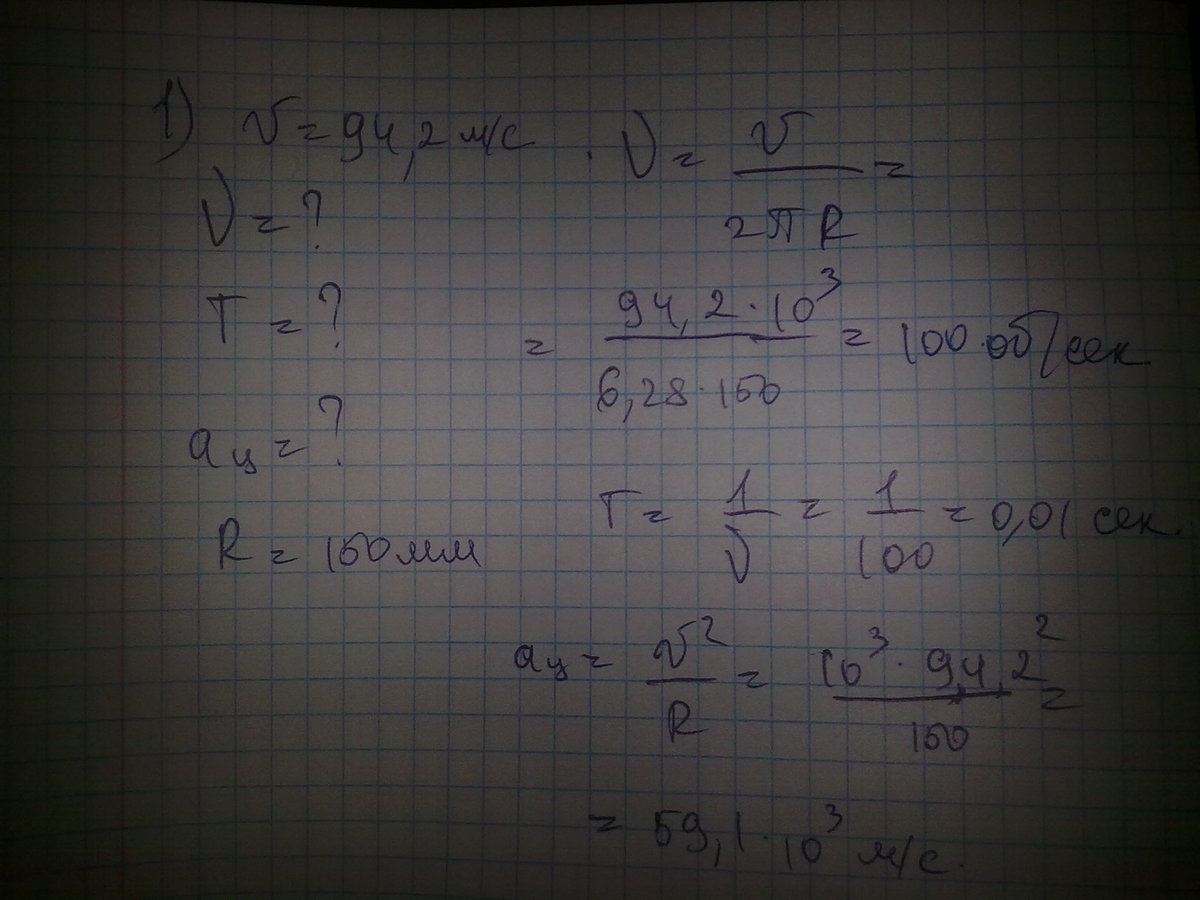 1) v = 94,2 м/с
ν = ?
T = ?
aц = ?
R = 150 мм
ν = v / 2πR =
= 94,2 · 10³ / 6,28 · 150 = 100 об/сек
T = 1/ν = 1/100 = 0,01 сек.
aц = v² / R = 10³ · 94,2² / 150 =
= 59,1 · 10³ м/с.